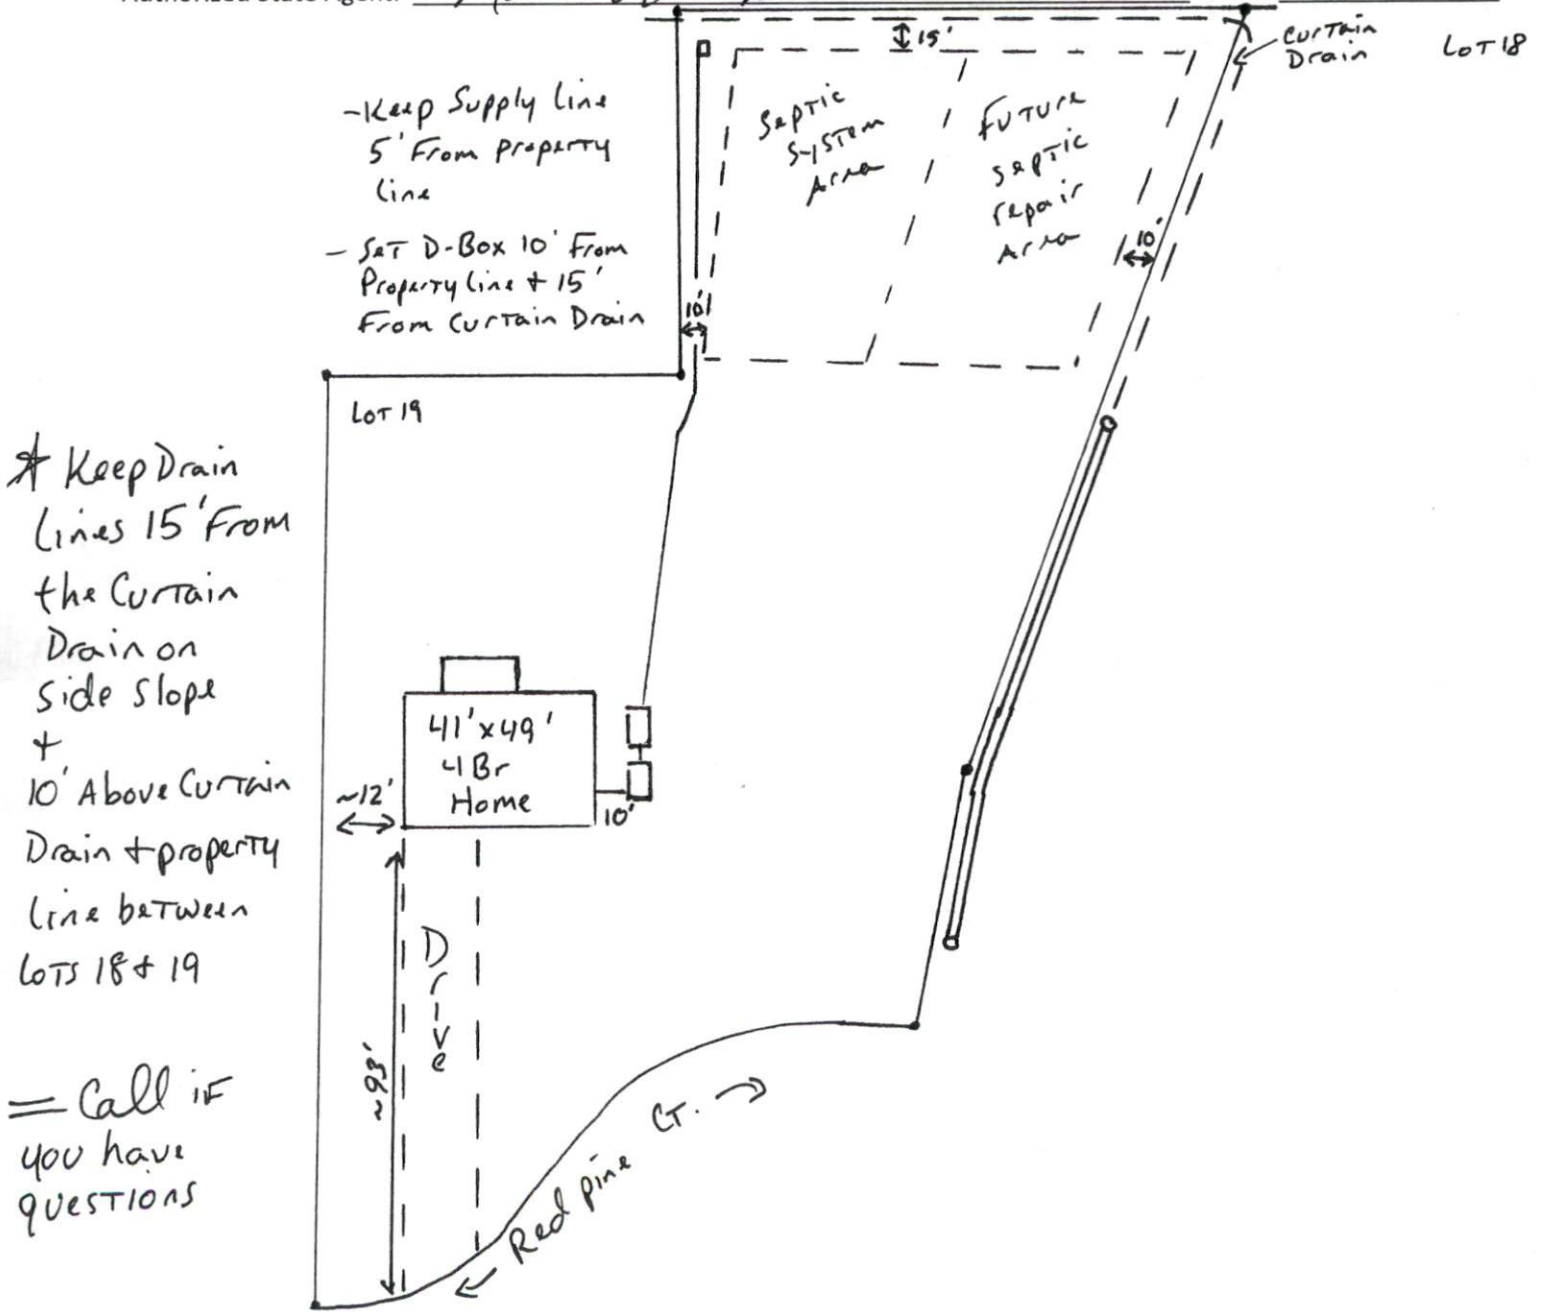 Authorized State Agent:
15'
Curtain
Drain
LOT 18
-Keep Supply Line
5' From property
Line
- Set D-Box 10' From
Property Line + 15'
From Curtain Drain
Septic
System
Area
Future
Septic
repair
Area
10'
10'
LOT 19
* Keep Drain
Lines 15' From
the Curtain
Drain on
Side Slope
+
10' Above Curtain
Drain + property
Line between
LOTS 18 + 19
= Call if
you have
questions
41' x 49'
4 Br
Home
~12'
10'
Drive
~93'
Red pine CT.